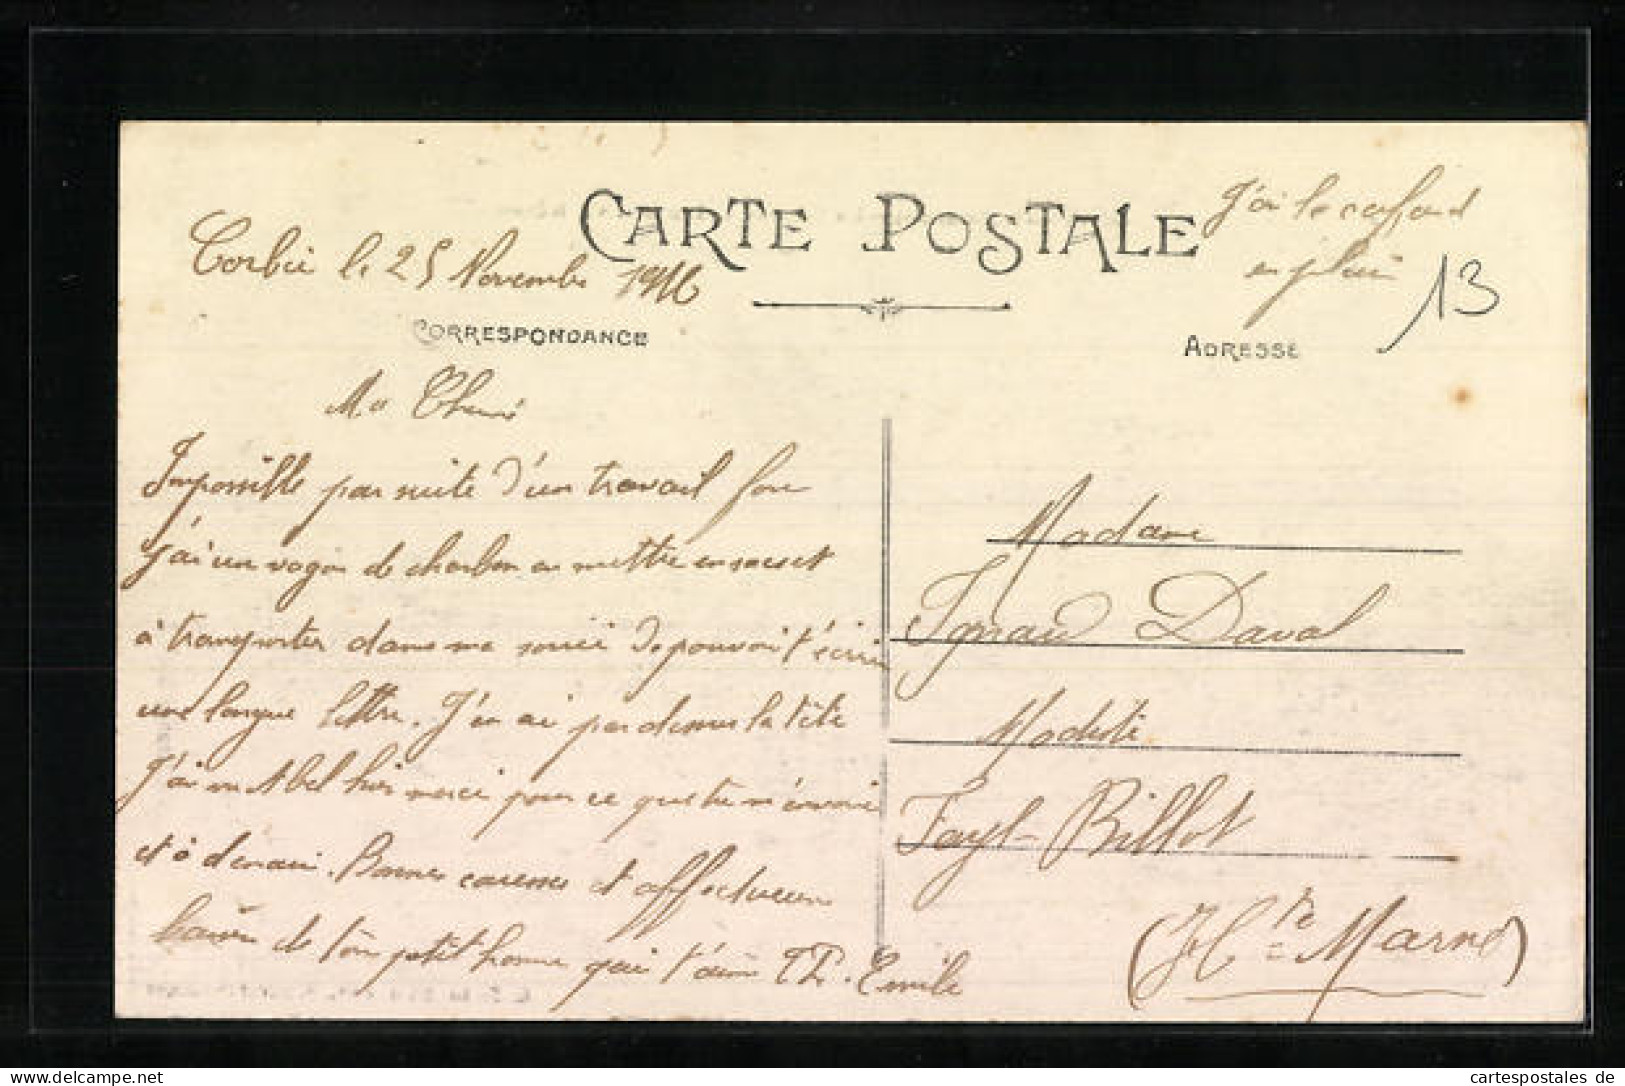 CARTE POSTALE
J'ai le cafard
en plein
13
Corbie le 25 Novembre 1916
CORRESPONDANCE
ADRESSE
Ma Cherie
Impossible par suite d'un travail fou
j'ai un wagon de charbon a mettre en sac et
à transporter dans me de pouvoir t'écrire
une longue lettre. J'en ai par dessus la tête
J'ai vu Abel hier merci pour ce que tu m'envoie
et à demain. Bonnes caresses et affectueux
baiser de ton petit homme qui t'aime Emile
Madame
Daval
Modiste
Fayl-Billot
(Hte Marne)
cartespostales de